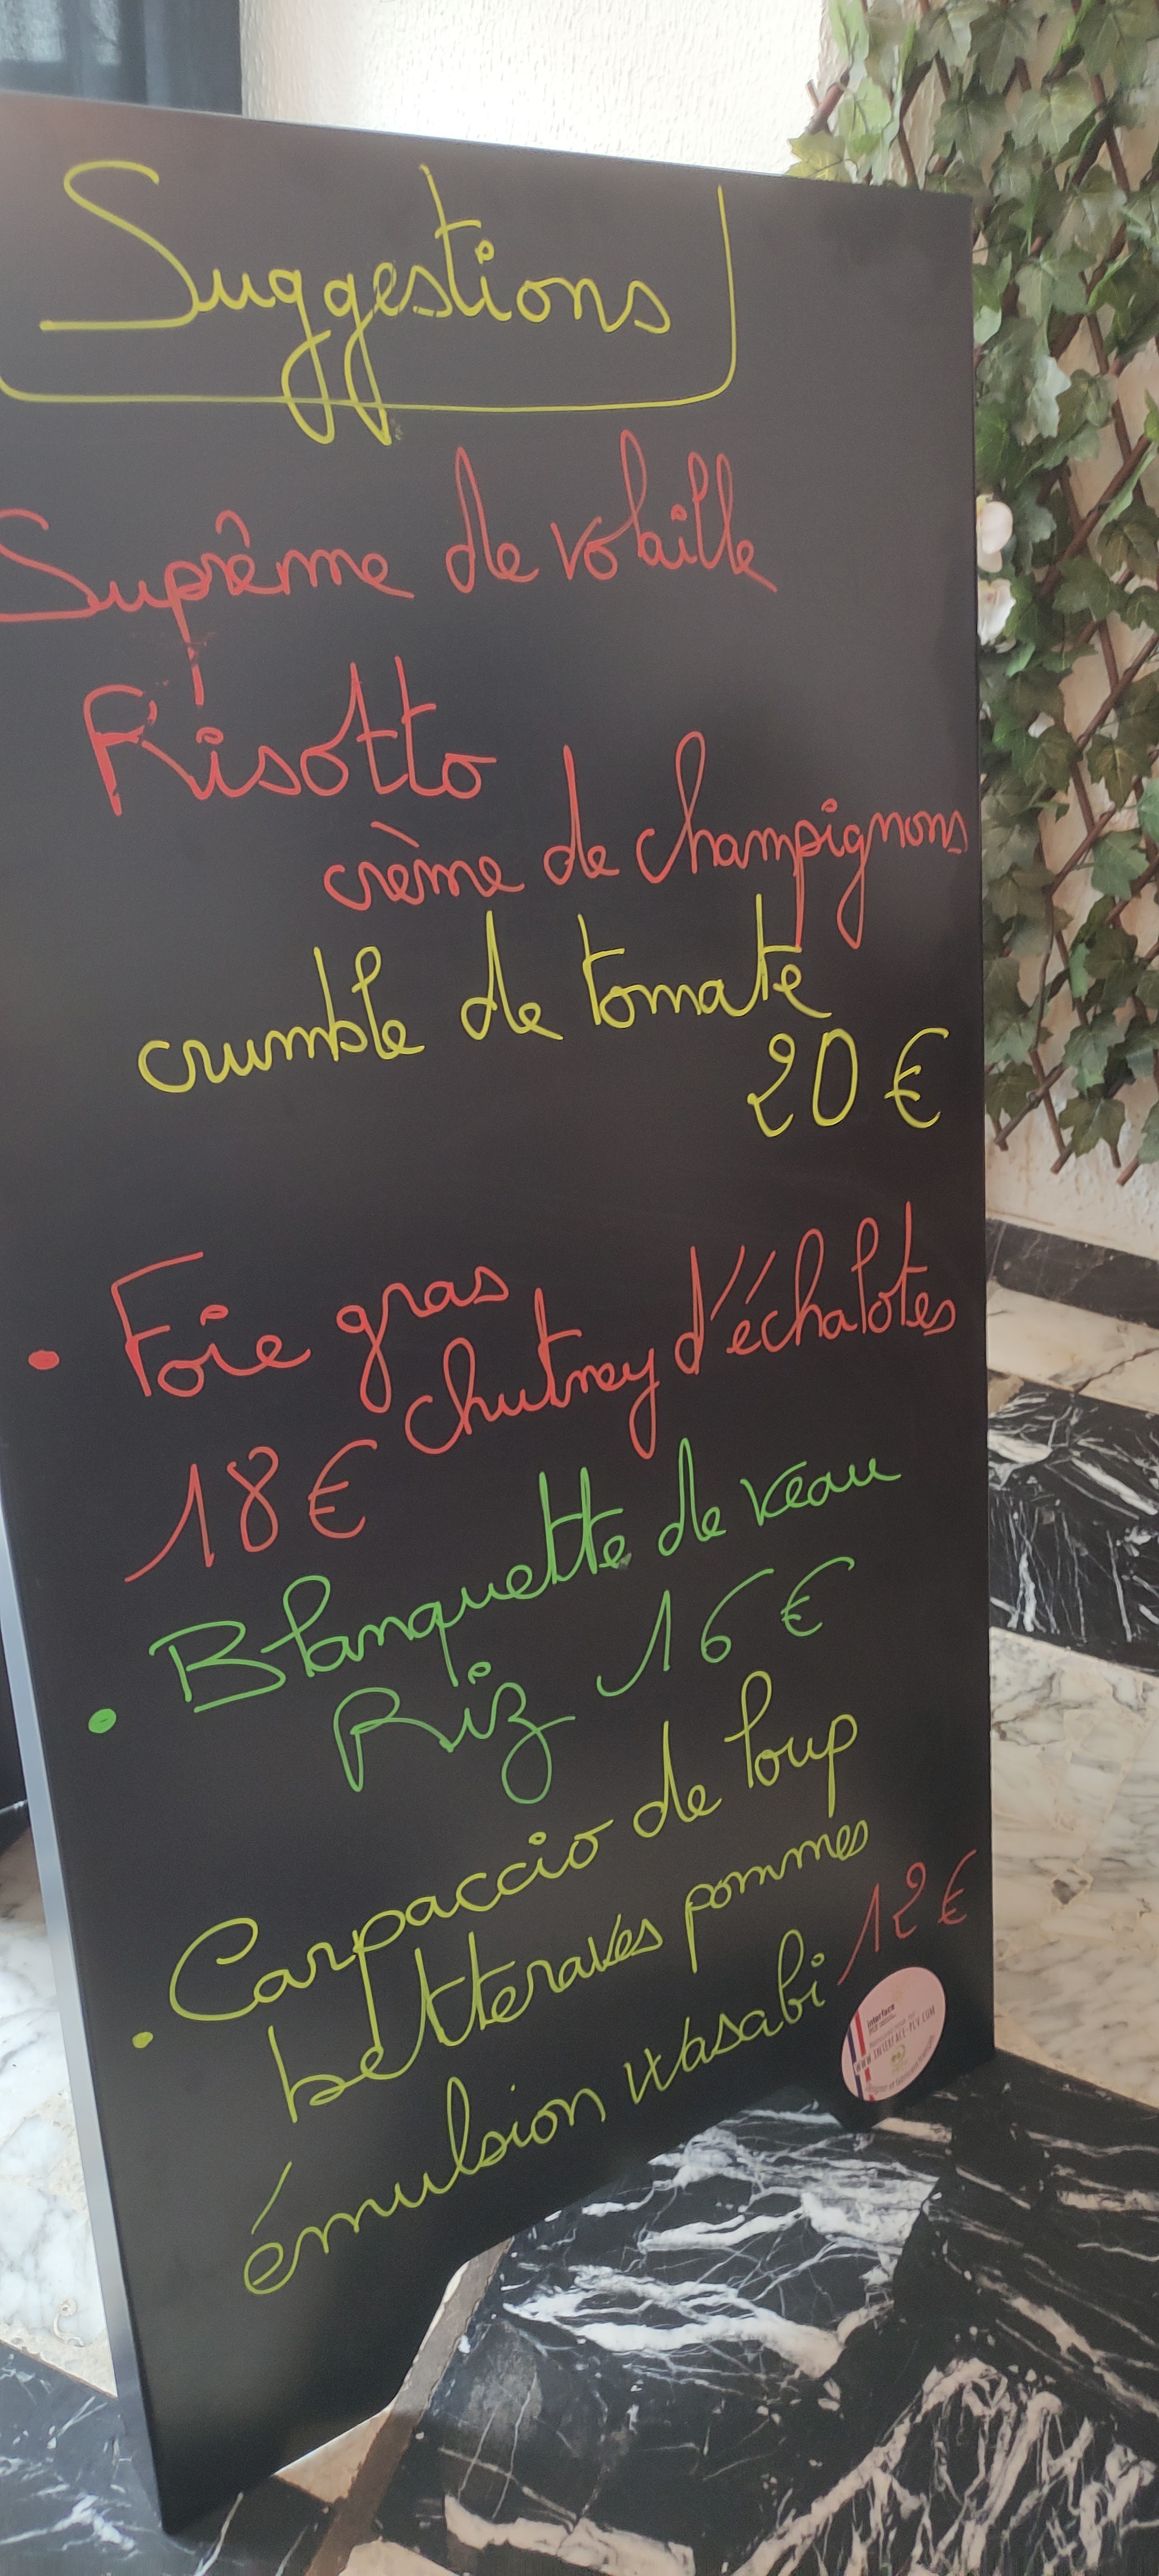 Suggestions
Suprême de volaille
Risotto
crème de champignons
crumble de tomate
20 €
• Foie gras
chutney d'échalotes
18 €
• Blanquette de veau
Riz 16 €
• Carpaccio de loup
betteraves pommes
émulsion wasabi 12 €
interface
WWW.INTERFACE-PLV.COM